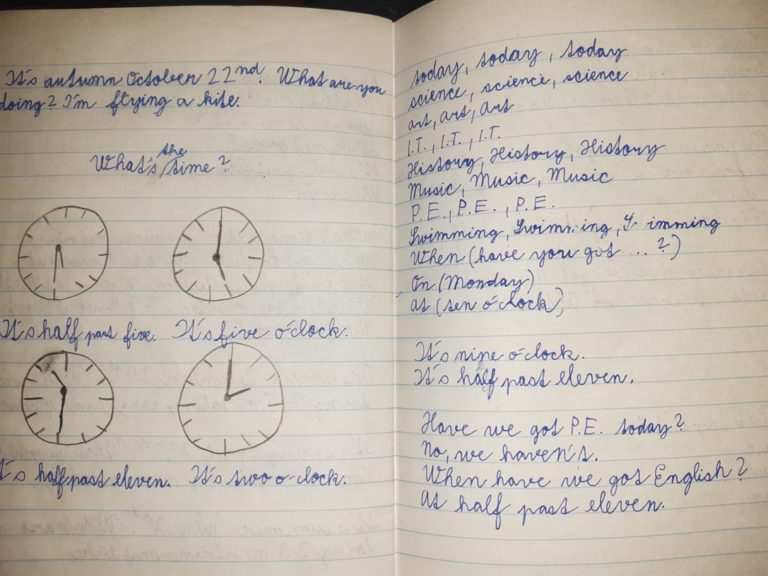 It's autumn October 22nd. What are you
doing? I'm flying a kite.
What's the time?
It's half past five. It's five o'clock.
It's half past eleven. It's twoo o'clock.
today, today, today
science, science, science
art, art, art
I.T., I.T., I.T.
History, History, History
Music, Music, Music
P.E., P.E., P.E.
Swimming, Swimming, Swimming
When (have you got ... ?)
On (Monday)
At (ten o'clock)
It's nine o'clock.
It's half past eleven.
Have we got P.E. today?
No, we haven't.
When have we got English?
At half past eleven.